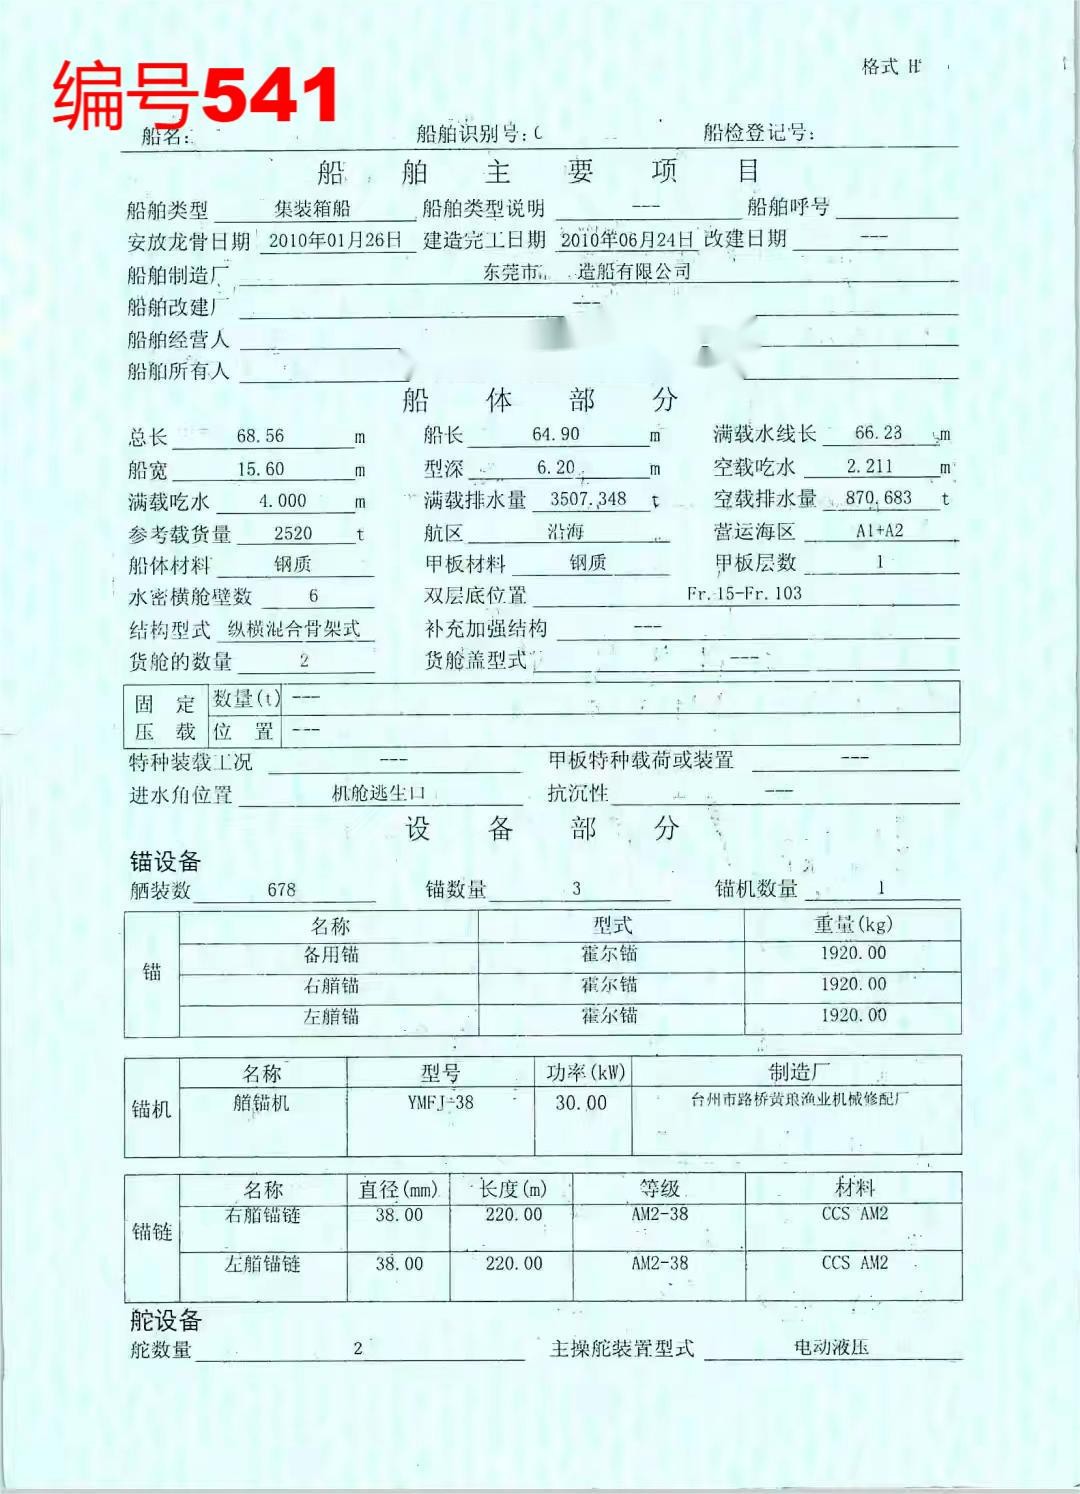 格式 H
编号541
船名: 船舶识别号:C 船检登记号:
船舶主要项目
船舶类型 集装箱船 船舶类型说明 --- 船舶呼号
安放龙骨日期 2010年01月26日 建造完工日期 2010年06月24日 改建日期 ---
船舶制造厂 东莞市 造船有限公司
船舶改建厂 ---
船舶经营人
船舶所有人
船体部分
总长 68.56 m 船长 64.90 m 满载水线长 66.23 m
船宽 15.60 m 型深 6.20 m 空载吃水 2.211 m
满载吃水 4.000 m 满载排水量 3507.348 t 空载排水量 870.683 t
参考载货量 2520 t 航区 沿海 营运海区 A1+A2
船体材料 钢质 甲板材料 钢质 甲板层数 1
水密横舱壁数 6 双层底位置 Fr.15-Fr.103
结构型式 纵横混合骨架式 补充加强结构 ---
货舱的数量 2 货舱盖型式 ---
固定 数量(t) ---
压载 位置 ---
特种装载工况 --- 甲板特种载荷或装置 ---
进水角位置 机舱逃生口 抗沉性 ---
设备部分
锚设备
舾装数 678 锚数量 3 锚机数量 1
名称 型式 重量(kg)
备用锚 霍尔锚 1920.00
锚 右艏锚 霍尔锚 1920.00
左艏锚 霍尔锚 1920.00
名称 型号 功率(kW) 制造厂
锚机 艏锚机 YMFJ-38 30.00 台州市路桥黄琅渔业机械修配厂
名称 直径(mm) 长度(m) 等级 材料
右艏锚链 38.00 220.00 AM2-38 CCS AM2
锚链
左艏锚链 38.00 220.00 AM2-38 CCS AM2
舵设备
舵数量 2 主操舵装置型式 电动液压